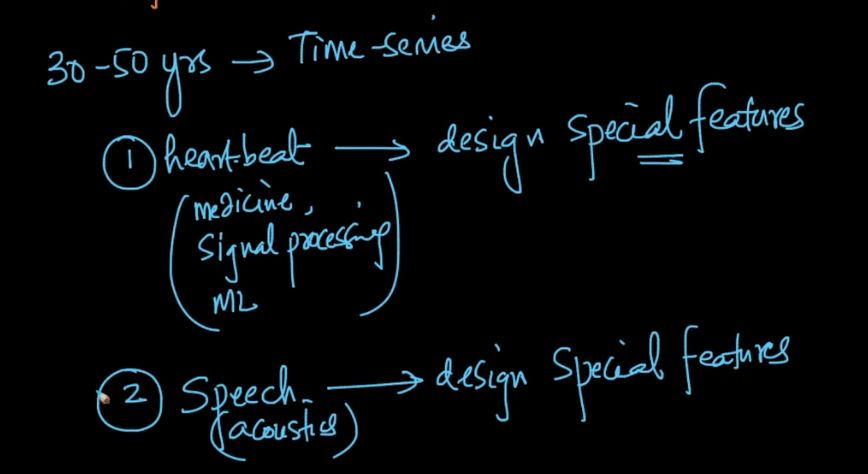 30-50 yrs → Time-series
① heart-beat → design special features
(medicine,
signal processing
ML)
② Speech → design special features
(acoustics)